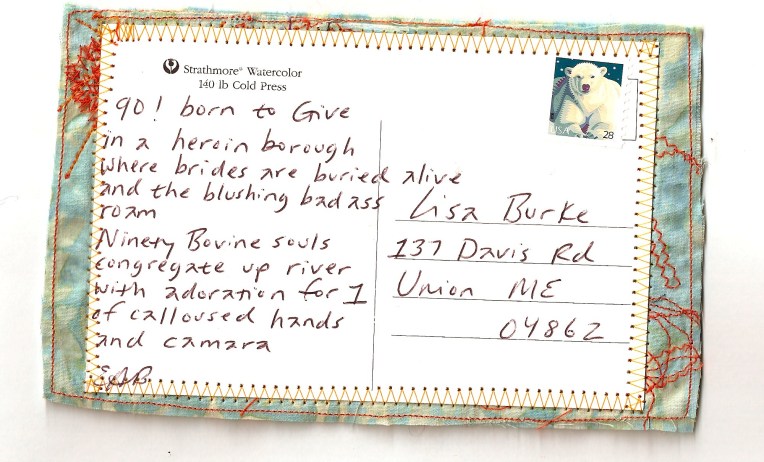 Strathmore® Watercolor
140 lb Cold Press
90! born to Give
in a heroin borough
where brides are buried alive
and the blushing badass
roam
Ninety Bovine souls
congregate up river
with adoration for 1
of calloused hands
and camara
USA 28
Lisa Burke
137 Davis Rd
Union ME
04862